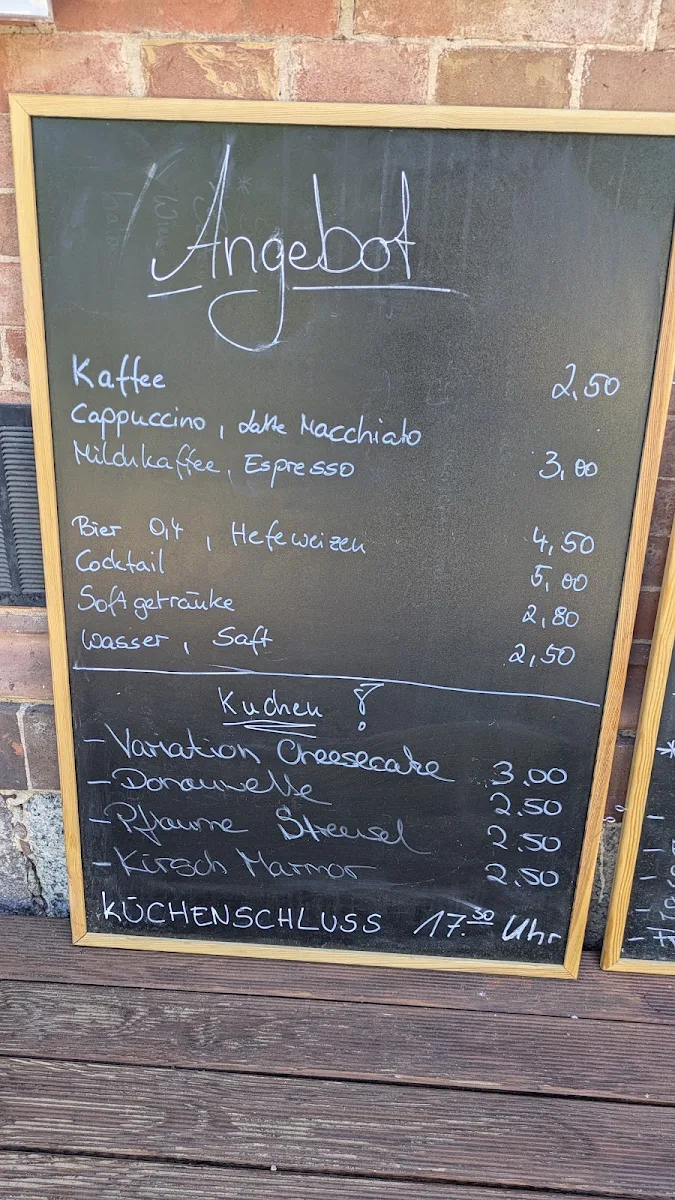 Angebot
Kaffee 2,50
Cappuccino, Latte Macchiato
Milchkaffee, Espresso 3,00
Bier 0,4, Hefeweizen 4,50
Cocktail 5,00
Softgetränke 2,80
Wasser, Saft 2,50
Kuchen !
- Variation Cheesecake 3.00
- Donauwelle 2.50
- Pflaume Streusel 2.50
- Kirsch Marmor 2.50
KÜCHENSCHLUSS 17.30 Uhr